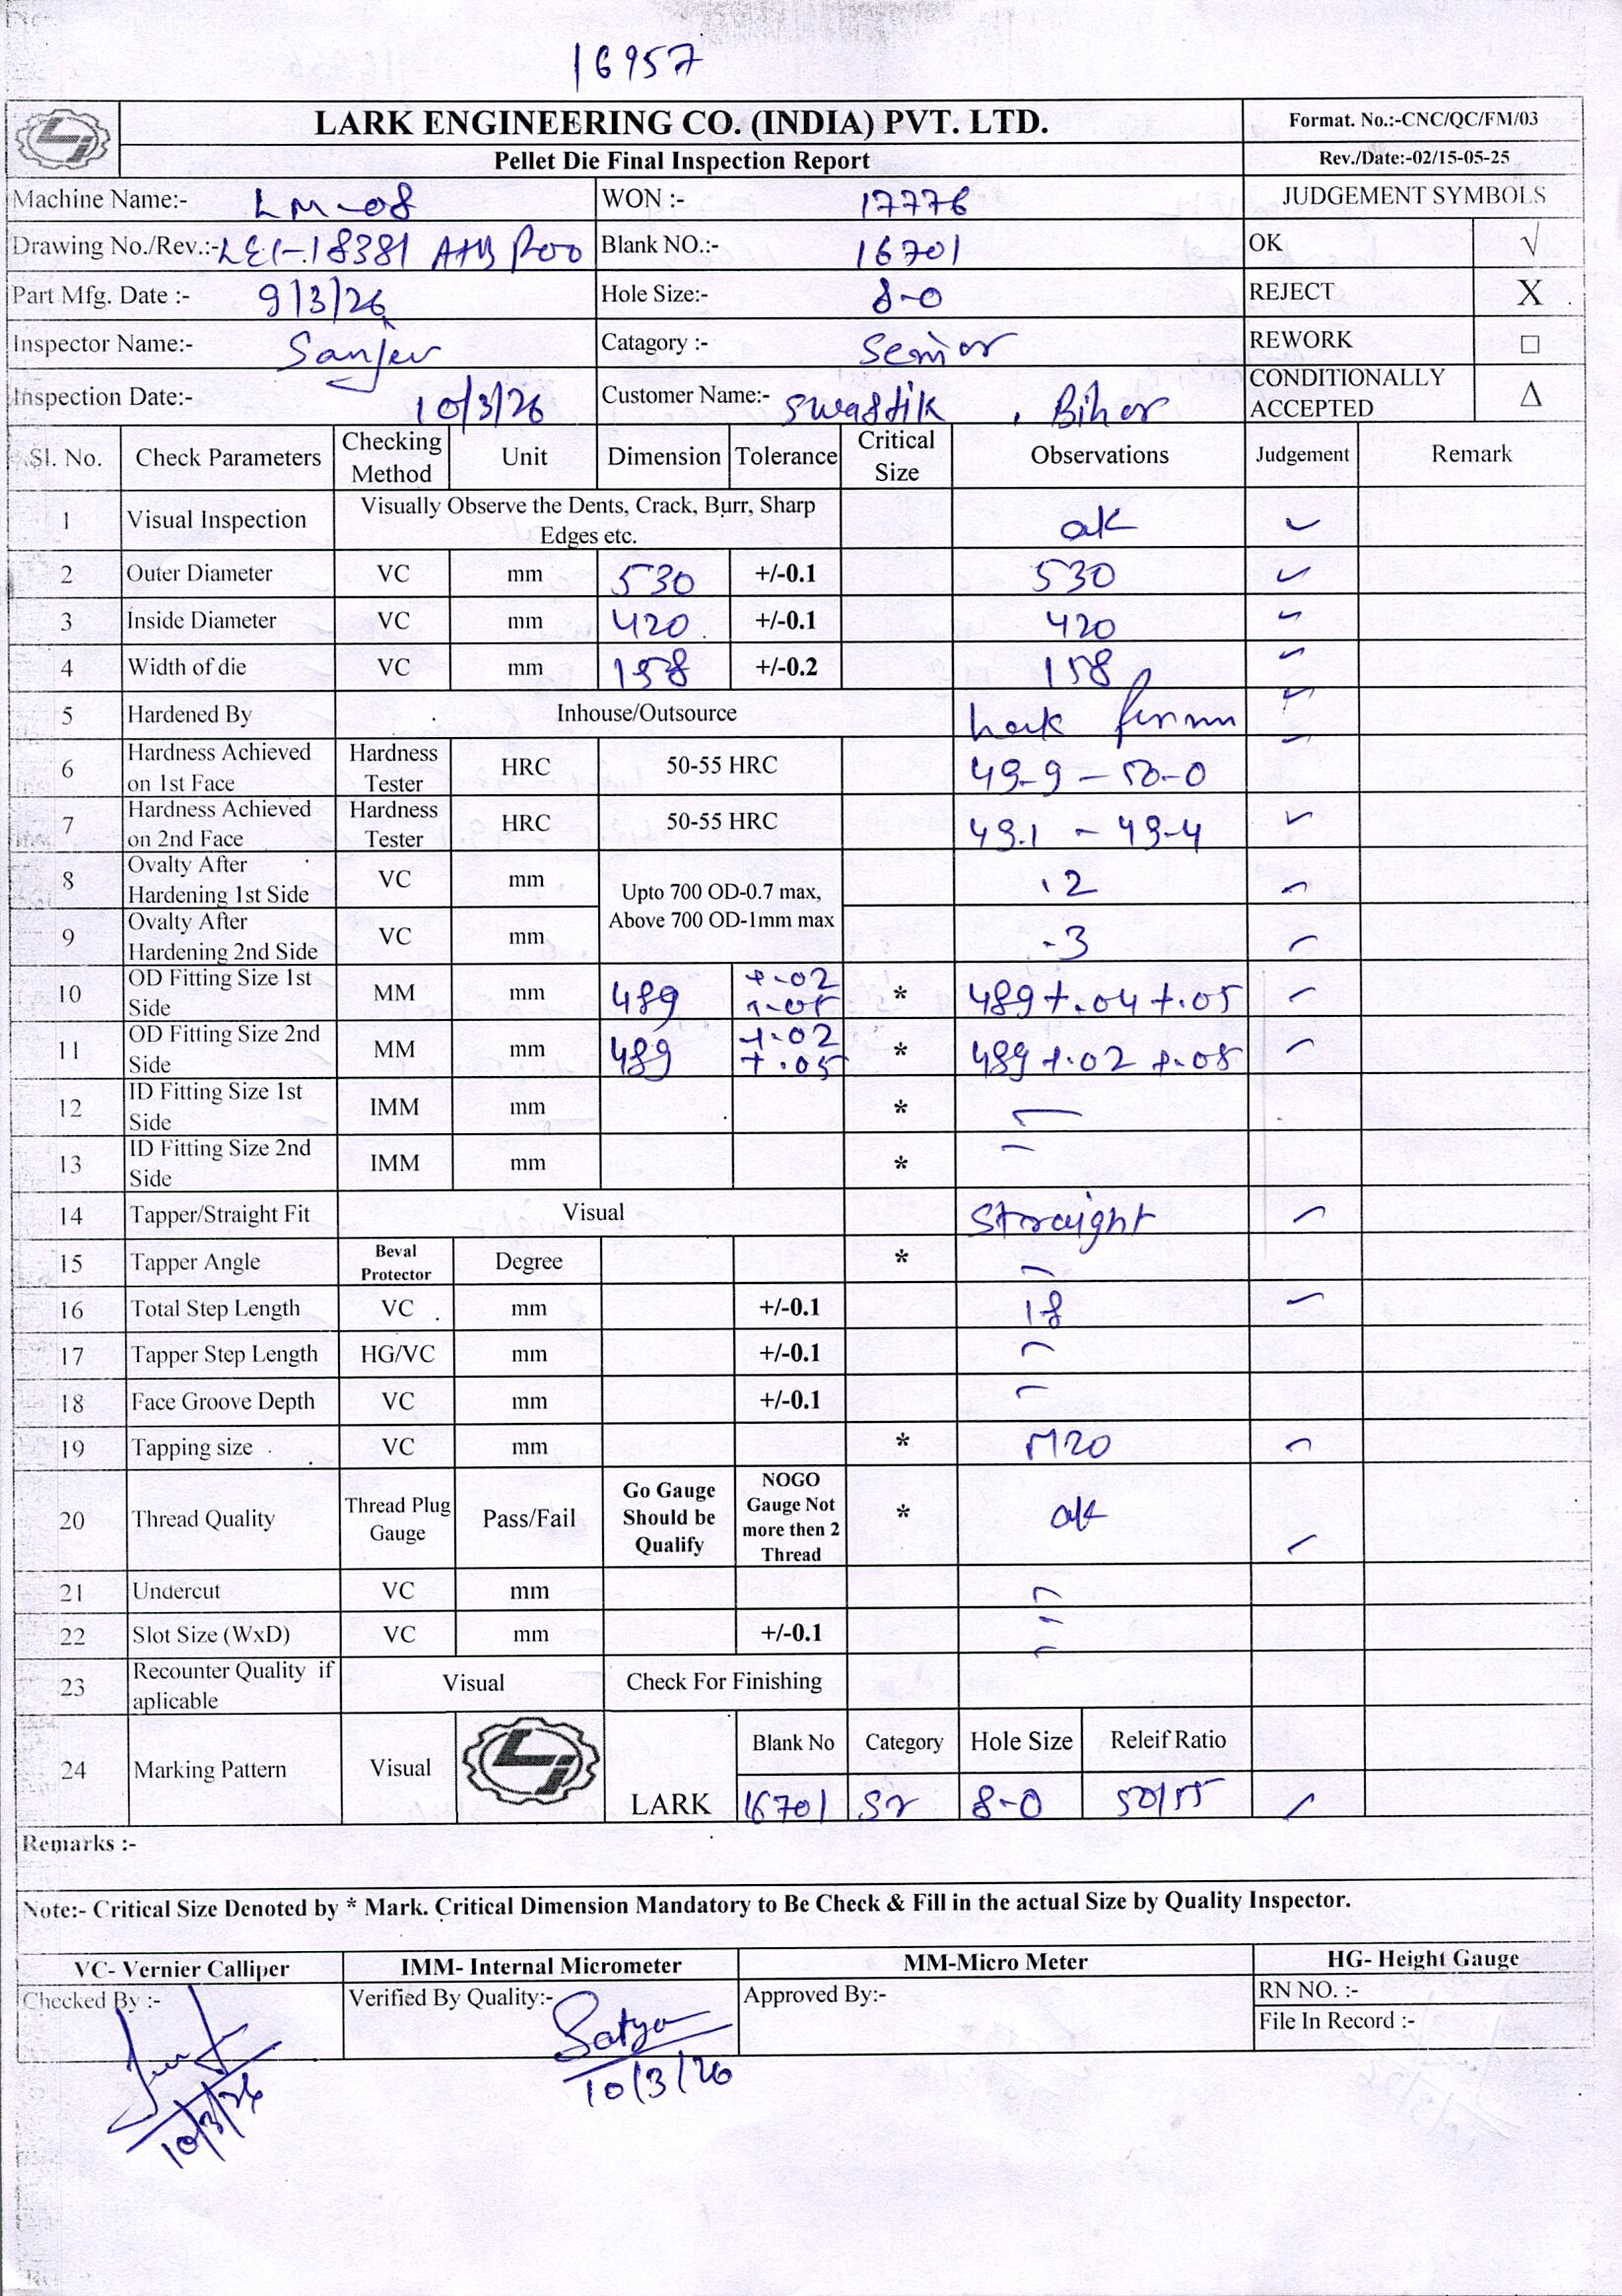 16957
LARK ENGINEERING CO. (INDIA) PVT. LTD.
Format. No.:-CNC/QC/FM/03
Pellet Die Final Inspection Report
Rev./Date:-02/15-05-25
Machine Name:- LM-08 WON :- 17776 JUDGEMENT SYMBOLS
Drawing No./Rev.:- LEI-18381 A+B R00 Blank NO.:- 16701 OK √
Part Mfg. Date :- 9/3/26 Hole Size:- 8-0 REJECT X
Inspector Name:- Sanjev Catagory :- Senior REWORK □
Inspection Date:- 10/3/26 Customer Name:- Swastik , Bihar CONDITIONALLY ACCEPTED Δ
Sl. No. Check Parameters Checking Method Unit Dimension Tolerance Critical Size Observations Judgement Remark
1 Visual Inspection Visually Observe the Dents, Crack, Burr, Sharp Edges etc. ok ✓
2 Outer Diameter VC mm 530 +/-0.1 530 ✓
3 Inside Diameter VC mm 420 +/-0.1 420 ✓
4 Width of die VC mm 158 +/-0.2 158 ✓
5 Hardened By Inhouse/Outsource ✓
6 Hardness Achieved on 1st Face Hardness Tester HRC 50-55 HRC 49-9 – 50-0 ✓
7 Hardness Achieved on 2nd Face Hardness Tester HRC 50-55 HRC 49.1 – 49-4 ✓
8 Ovalty After Hardening 1st Side VC mm Upto 700 OD-0.7 max, Above 700 OD-1mm max .2 ✓
9 Ovalty After Hardening 2nd Side VC mm .3 ✓
10 OD Fitting Size 1st Side MM mm 489 +.02 +.05 * 489 +.04 +.05 ✓
11 OD Fitting Size 2nd Side MM mm 489 +.02 +.05 * 489 +.02 +.08 ✓
12 ID Fitting Size 1st Side IMM mm * –
13 ID Fitting Size 2nd Side IMM mm * –
14 Tapper/Straight Fit Visual Straight ✓
15 Tapper Angle Beval Protector Degree * –
16 Total Step Length VC mm +/-0.1 18 ✓
17 Tapper Step Length HG/VC mm +/-0.1 –
18 Face Groove Depth VC mm +/-0.1 –
19 Tapping size VC mm * M20 ✓
20 Thread Quality Thread Plug Gauge Pass/Fail Go Gauge Should be Qualify NOGO Gauge Not more then 2 Thread * ok ✓
21 Undercut VC mm –
22 Slot Size (WxD) VC mm +/-0.1 –
23 Recounter Quality if aplicable Visual Check For Finishing –
24 Marking Pattern Visual LARK Blank No Category Hole Size Releif Ratio
16701 Sr 8-0 50/55 ✓
Remarks :-
Note:- Critical Size Denoted by * Mark. Critical Dimension Mandatory to Be Check & Fill in the actual Size by Quality Inspector.
VC- Vernier Calliper IMM- Internal Micrometer MM-Micro Meter HG- Height Gauge
Checked By :- Verified By Quality:- Satya Approved By:- RN NO. :-
File In Record :-
10/3/26 10/3/26